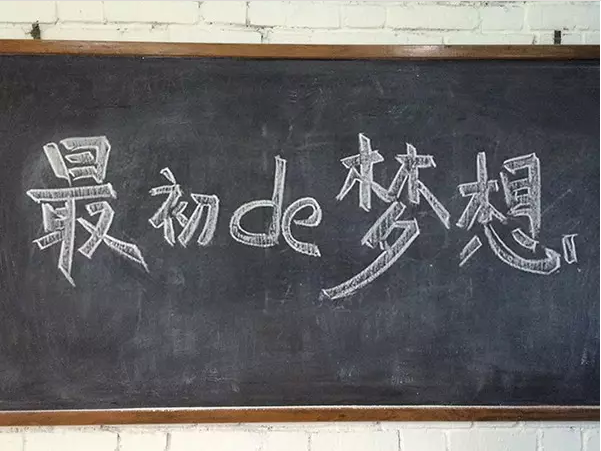 最初de梦想